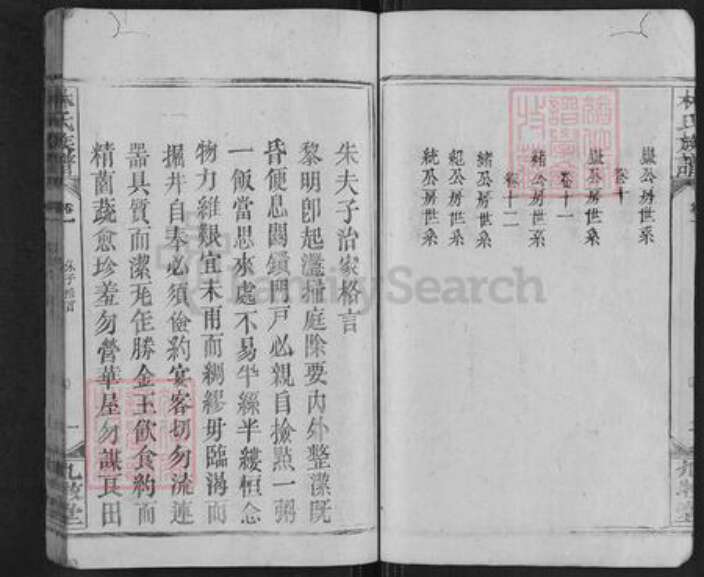 林氏族譜
九牧堂
嶽公房世系
卷十
嶽公房世系
卷十一
緒公房世系
卷十二
緒公房世系
紀公房世系
統公房世系
朱夫子治家格言
黎明即起灑掃庭除要內外整潔既
昏便息關鎖門戶必親自撿點一粥
一飯當思來處不易半絲半縷恒念
物力維艱宜未雨而綢繆毋臨渴而
掘井自奉必須儉約宴客切勿流連
器具質而潔瓦缶勝金玉飲食約而
精園蔬愈珍羞勿營華屋勿謀良田
林氏族譜
卷一
朱子格言
一
九牧堂
FamilySearch